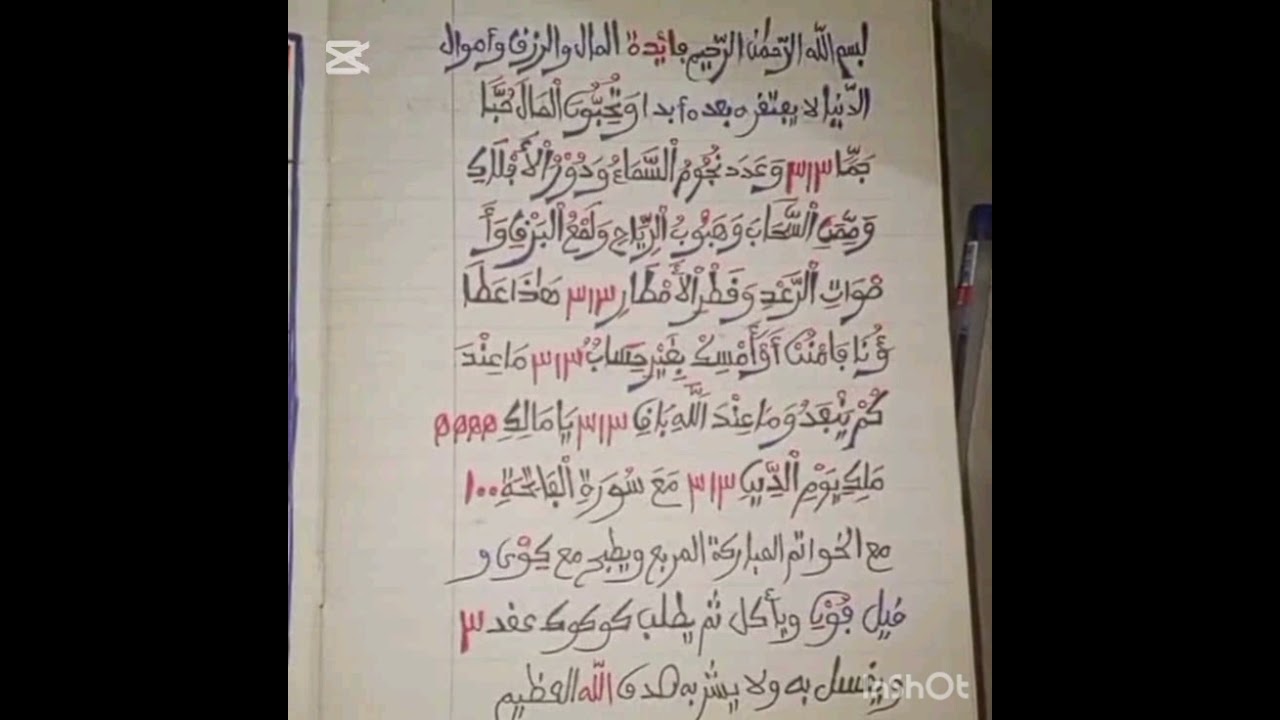 بسم الله الرّحمٰن الرّحيم فائدة المال والرزق وأموال
الدّنيا لا يفتقر بعده أبدا وَتُحِبُّونَ الْمَالَ حُبًّا
جَمًّا ٣١٣ وَعَدَدَ نُجُومُ السَّمَاءُ وَدُوْرُ الْأَفْلَاكِ
السَّحَابَ وَهَبُوبُ الرِّيَاحِ وَلَمْعُ الْبَرْقِ وَأَ
صْوَاتِ الرَّعْدِ وَقَطْرِ الْأَمْطَارِ ٣١٣ هَٰذَا عَطَا
ؤُنَا فَامْنُنْ أَوْ أَمْسِكْ بِغَيْرِ حِسَابٌ ٣١٣ مَا عِنْدَ
كُمْ يَنْفَدُ وَمَا عِنْدَ اللَّهِ بَاقٍ ٣١٣ يَا مَالِكِ
مَلِكِ يَوْمِ الدِّينِ ٣١٣ مَعَ سُورَةِ الْفَاتِحَةِ ١٠٠
مع الخواتم المباركة المربع ويطبخ مع كوْى و
فيل فُوْيَا ويأكل ثم يطلب كوكوك عقد ٣
ويغسل به ولا يشربه صدق الله العظيم
InShOt